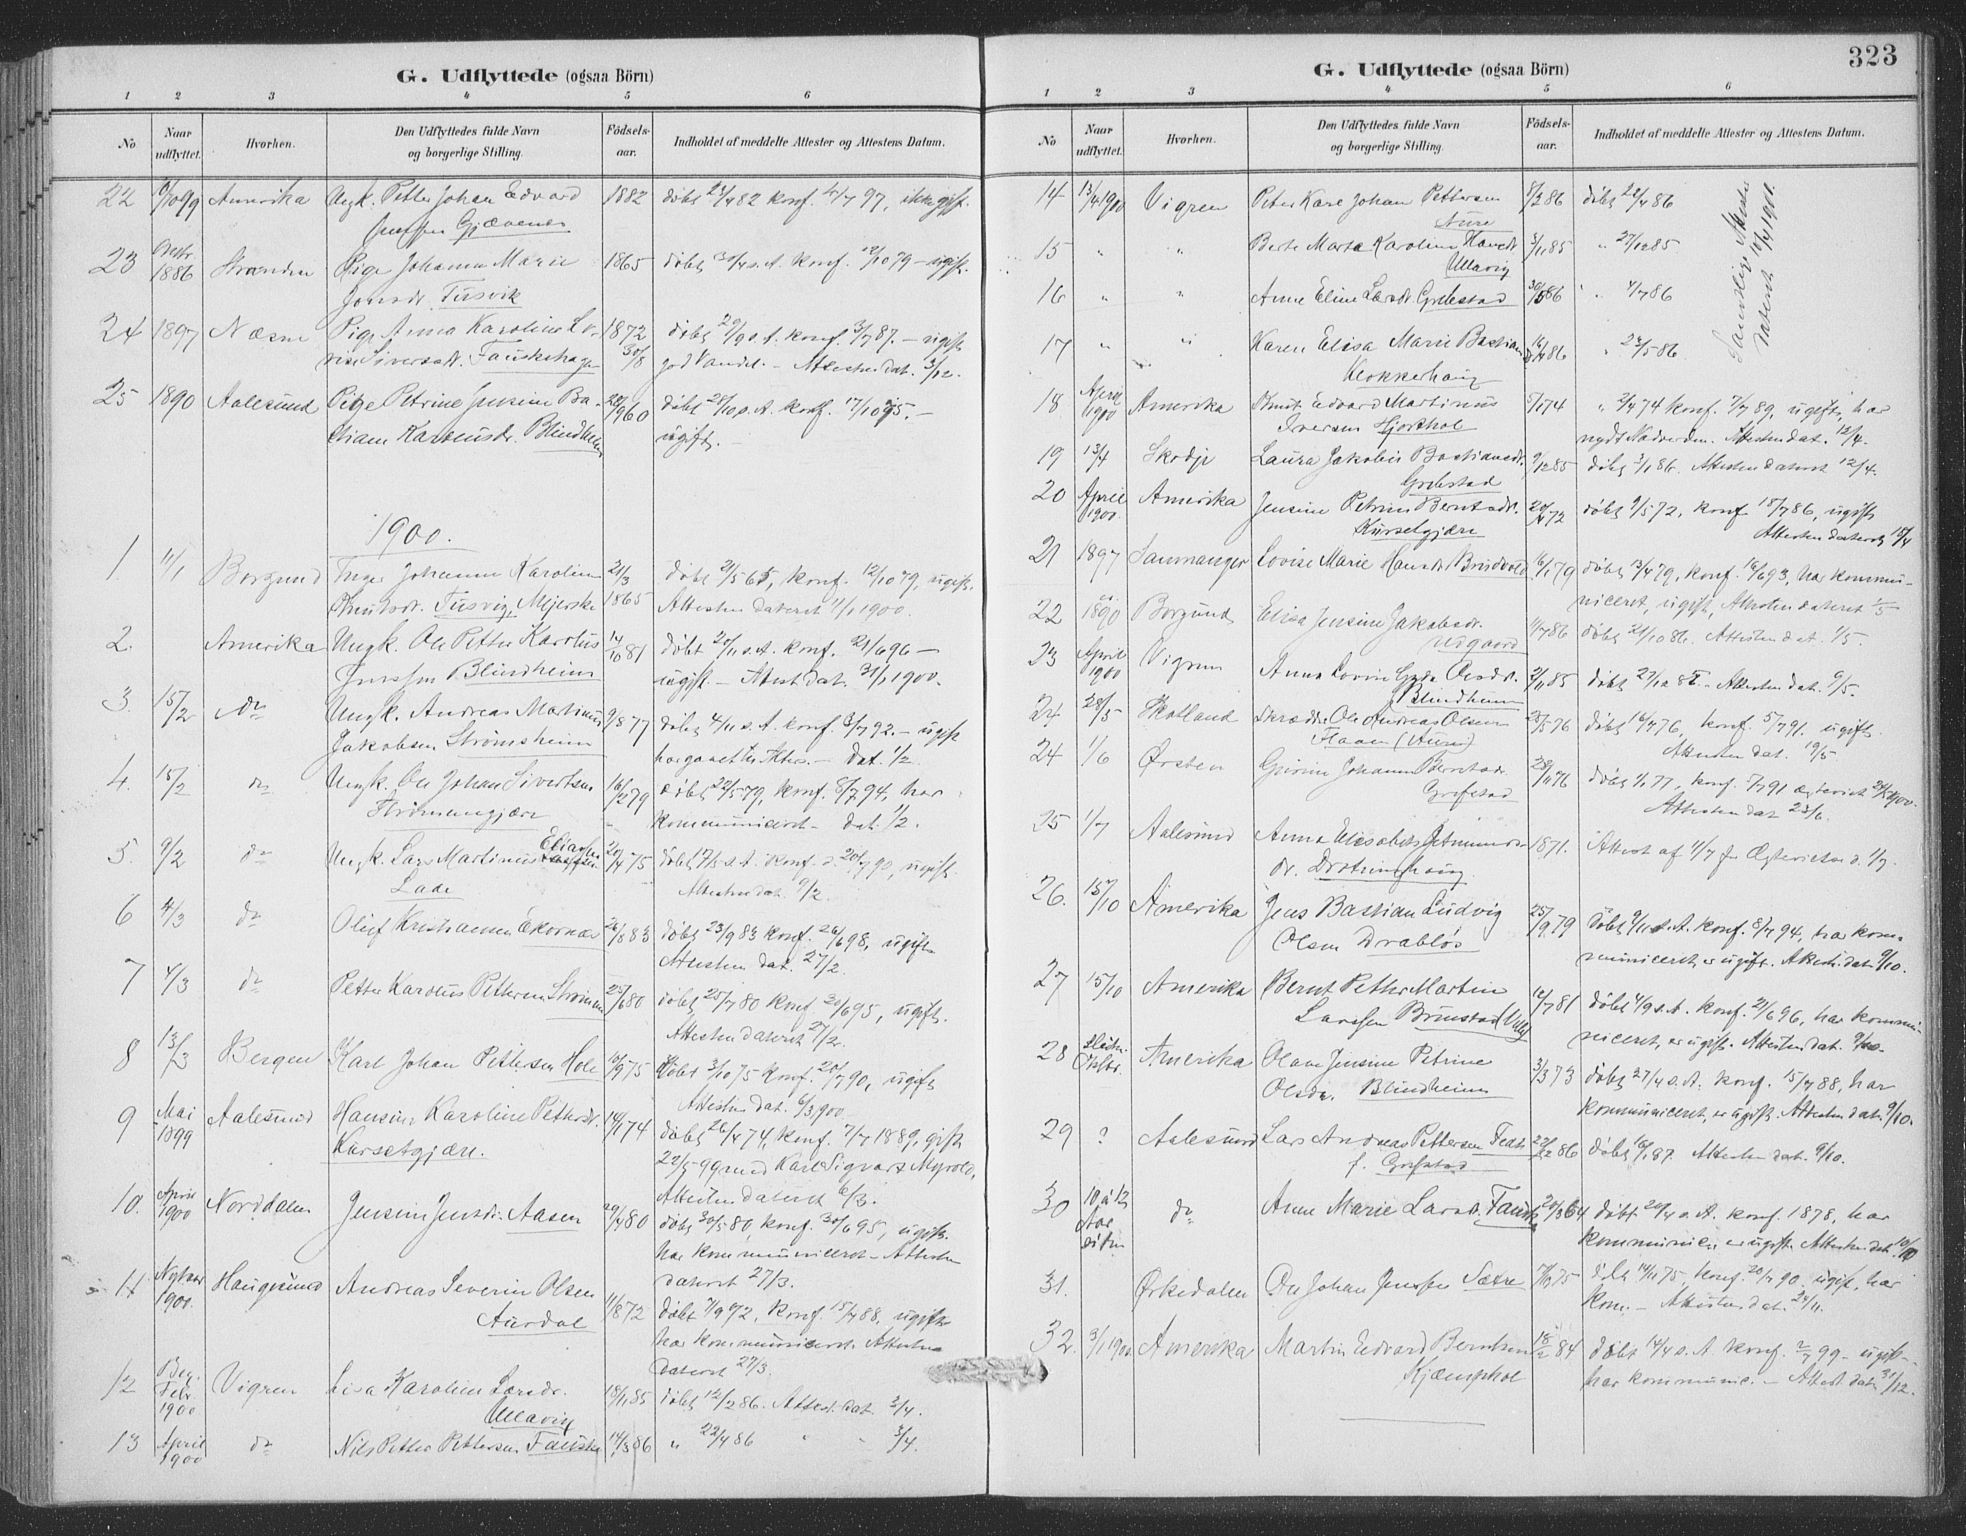 G. Udflyttede (ogsaa Börn)
1 2 3 4 5 6
No Naar udflyttet. Hvorhen. Den Udflyttedes fulde Navn og borgerlige Stilling. Födsels-aar. Indholdet af meddelte Attester og Attestens Datum.
22 Amerika Ungk. Petter Johan Edvard 1882 döbt 23/4 82 konf. 4/7 97, ikke gift.
Gjævenes
23 1886 Stranden Pige Johanne Marie 1865 konf. 12/10 79 – ugift.
Jonsdr. Tusvik
24 1897 Pige Anna Karoline Lo- 1872 konf. 3/7 87. – ugift
Siversdr. Fauskehagen 30/8 god Vandel. – Attesten dat. 3/12.
25 1890 Aalesund Pige Petrine Jensine Ba- 1860 döbt 28/10 s. A. konf. 17/10 75. –
Blindheim ugift. –
1900.
1. 11/1 Borgund Inger Johanne Karoline 21/3 döbt 21/5 65, konf. 12/10 79, ugift.
Knutsdr. Tusvig, Mejerske 1865 Attesten dateret 11/1 1900.
2. Amerika Ungk. Ole Petter Karolus 14/10 81 döbt 20/11 s. A. konf. 21/6 96 –
Jenssen Blindheim ugift – Attest dat. 31/1 1900.
3. 15/2 do Ungk. Andreas Martinus 9/8 77 döbt 4/11 s. A. konf. 3/7 92. – ugift
Jakobsen Strömsheim har gaaet til Alters. – Dat. 1/2.
4. 15/2 do Ungk. Ole Johan Sivertsen 16/12 79 konf. 8/7 94, har
Strömmegjære kommuniceret – Dat. 1/2.
5. 9/2 do Ungk. Lars Martinus Eliassen 20/4 75 konf. 20/7 90, ugift.
Lade Attesten dat. 9/2.
6 4/3 do Oluf Kristiansen Ekornæs 26/8 83 döbt 23/9 83 konf. 26/6 98, ugift.
Attesten dat. 27/2.
7 4/3 do Petter Karolus Pettersen Strömmen 25/6 80 döbt 25/7 80 konf. 20/6 95, ugift.
Attesten dateret 27/2.
8 13/3 Bergen Karl Johan Pettersen Hole 10/9 75 döbt 3/10 75 konf. 20/7 90, ugift
Attesten dat. 6/3 1900
9 Mai 1899 Aalesund Hansine Karoline Pettersdr. 14/1 74 döbt 26/4 74, konf. 7/7 1889, gift
Kursetgjære. 22/5 99 med Karl Sigvart Myrold,
Attesten dateret 6/3.
10. April 1900 Norddalen Jensine Jensdr. Aasen 29/4 80 döbt 30/5 80, konf. 30/6 95, ugift.
har kommuniceret – Attesten
dateret 27/3.
11 Nytaar 1900. Haugesund Andreas Severin Olsen 11/8 72 döbt 7/9 72, konf. 15/7 88, ugift
Aurdal har kommuniceret. Attesten
dateret 27/3.
12 Beg. Febr. 1900 Vigren Lisa Karoline Larsdr. 18/11 85 döbt 12/2 86. Attest. dat. 3/4.
Ullavig
13 April 1900 do Nils Petter Pettersen Fauske 14/3 86 „ 22/4 86 „ „ 3/4.
323
G. Udflyttede (ogsaa Börn)
1 2 3 4 5 6
No Naar udflyttet. Hvorhen. Den Udflyttedes fulde Navn og borgerlige Stilling. Födsels-aar. Indholdet af meddelte Attester og Attestens Datum.
14 13/4 1900 Vigren Peter Karl Johan Pettersen 8/3 86 döbt 22/4 86
Aure
15 „ „ Berte Marta Karoline 3/11 85 „ 27/12 85
Ullavig
16 „ „ Anne Eline Larsdr. Grebstad 30/5 86 „ 4/7 86
17 „ „ Karen Elisa Marie Bastian 16/4 86 „ 23/5 86
Klokkerhaug
Samtlige Attester dateret 10/4 1900.
18. April 1900 Amerika Knut Edvard Martinus 5/1 74 „ 2/4 74 konf. 7/7 89, ugift, har
Iversen Hjorthol nydt Nadverden. Attesten dat. 12/4.
19 13/4 Skodje Laura Jakobie Bastiansdr. 9/12 85 döbt 3/1 86. Attesten dateret 12/4.
Grebstad
20 April 1900. Amerika Jensine Petrine Berntsdr. 20/4 72 döbt 9/5 72, konf. 18/7 86, ugift
Kursetgjære Attesten dateret 18/4
21 1897 Samnanger Lovise Marie Hansdr. Brudvold 16/1 79 döbt 13/4 79, konf. 16/6 93, har kommu-
niceret, ugift, Attesten dateret 1/5
22 1890 Borgund Elisa Jensine Jakobsdr. 11/7 86 döbt 21/10 86. Attesten dat. 1/5.
23 April 1900 Vigren Anna Lovise Olesdr. 2/11 85 döbt 27/12 85 – Attesten dat. 9/5.
Blindheim
24 28/5 Skotland Ole Andreas Olsen 25/5 76 döbt 16/7 76, konf. 5/7 91, ugift.
(Aure) Attesten dat. 19/5.
24 1/6 Örsten Johanne Berntsdr. 28/11 76 döbt 1/1 77, konf. 5/7 91 1900.
Grebstad Attesten dat. 23/6.
25 1/7 Aalesund Anna Elisabeth 1871. Attest af 1/7
dr. Drotninghaug.
26. 15/10 Amerika Jens Bastian Ludvig 25/9 79 Döbt 9/11 s. A. konf. 8/7 94, har kom-
Olsen Drablös municeret, er ugift. Attest. dat. 9/10.
27 15/10 Amerika Bernt Petter Martin 12/7 81 döbt 4/9 s. A. konf. 21/6 96, har kommu-
Larssen Brunstad niceret, er ugift. Attesten dat. 9/10.
28 Oktbr. Amerika Olave Jensine Petrine 3/3 73 döbt 27/4 s. A. konf. 15/7 88, har
Olsdr. Blindheim kommuniceret, er ugift. Attesten dat. 9/10.
29 ? Aalesund Lars Andreas Pettersen 22/12 86 döbt 16/1 87. Attesten dat. 9/10.
f. Grebstad
30 10 à 12 Aar siden do Anne Marie Larsdr. Fauske 20/3 64 döbt 20/4 s. A. konf. 1878, har
kommunic. er ugift. Attesten dat. 10/10
31. Örkedalen Ole Johan Jenssen Sætre 17/10 75 döbt 14/11 75, konf. 20/7 90. ugift, har
kom. – Attesten dat. 24/11.
32. 3/1 1900. Amerika Martin Edvard Berntsen 18/2 84 döbt 14/4 s. A. konf. 2/7 99 – ugift –
Kjæmphol har kommunic. – Attest. dat. 31/12.